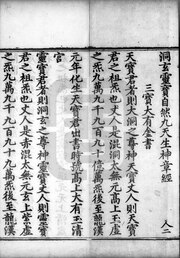 洞玄靈寶自然九天生神章經
三寶大有金書
天寶君者則大洞之尊神天寶丈人則天寶
君之祖炁也丈人是混洞太無元高上玉虛
之炁九萬九千九百九十億萬炁後至龍漢
元年化生天寶君出書時號高上大有玉清
宮
靈寶君者則洞玄之尊神靈寶丈人則靈寶
君之祖炁也丈人是赤混太無元玄上紫虛
之炁九萬九千九百九十九萬炁後至龍漢